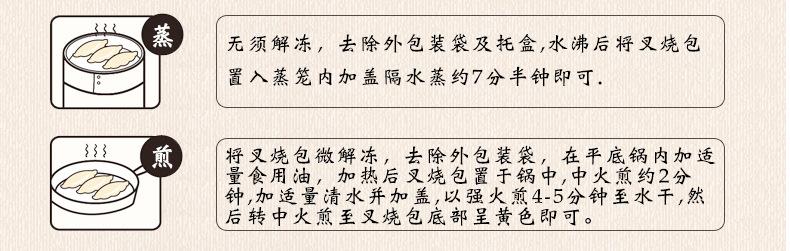 蒸
无须解冻，去除外包装袋及托盒,水沸后将叉烧包
置入蒸笼内加盖隔水蒸约7分半钟即可.
煎
将叉烧包微解冻，去除外包装袋，在平底锅内加适
量食用油，加热后叉烧包置于锅中,中火煎约2分
钟,加适量清水并加盖,以强火煎4-5分钟至水干,然
后转中火煎至叉烧包底部呈黄色即可。